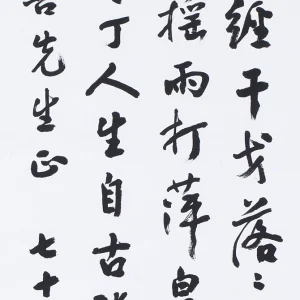 缠干戈落〻
摇雨打萍皇
丁人生自古
先生正 七十